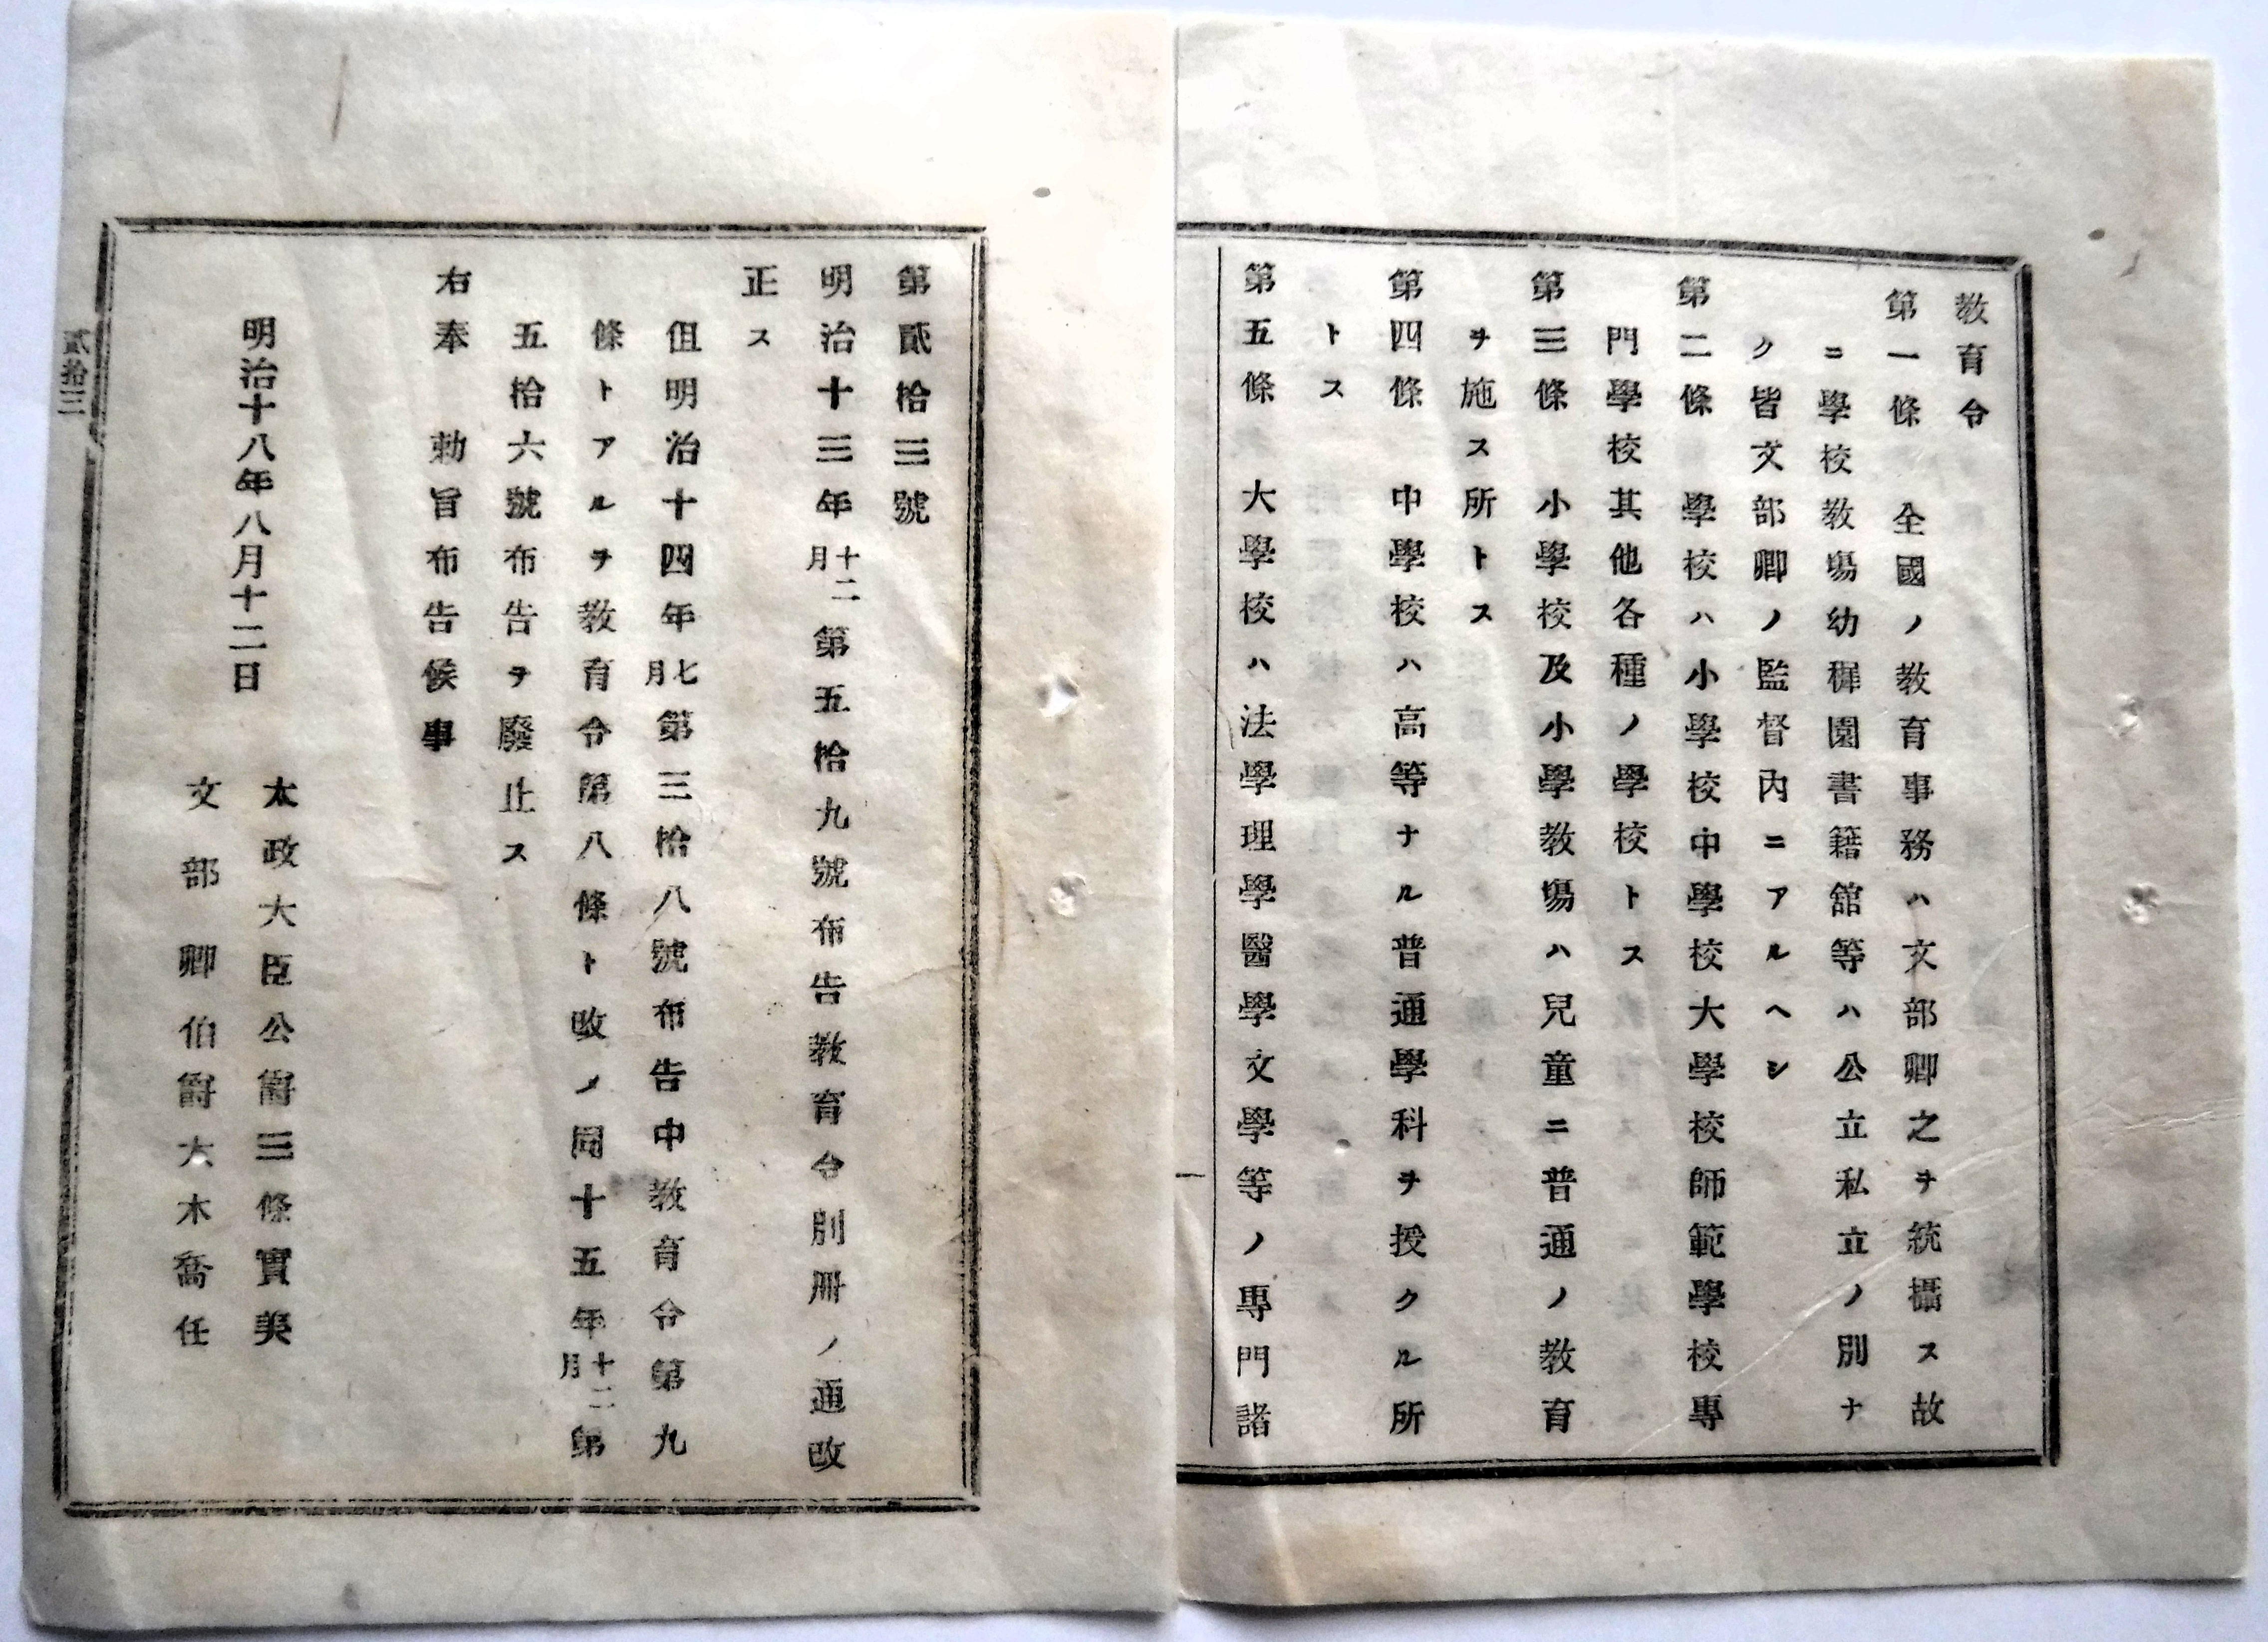 教育令
第一條　全國ノ教育事務ハ文部卿之ヲ統攝ス故
ニ學校教塲幼穉園書籍舘等ハ公立私立ノ別ナ
ク皆文部卿ノ監督內ニアルヘシ
第二條　學校ハ小學校中學校大學校師範學校專
門學校其他各種ノ學校トス
第三條　小學校及小學教塲ハ兒童ニ普通ノ教育
ヲ施ス所トス
第四條　中學校ハ高等ナル普通學科ヲ授クル所
トス
第五條　大學校ハ法學理學醫學文學等ノ專門諸
一
第貳拾三號
明治十三年十二月第五拾九號布告教育令別冊ノ通改
正ス
但明治十四年七月第三拾八號布告中教育令第九
條トアルヲ教育令第八條ト改メ同十五年十二月第
五拾六號布告ヲ廢止ス
右奉　勅旨布告候事
明治十八年八月十二日
太政大臣公爵三條實美
文部卿伯爵大木喬任
貳拾三